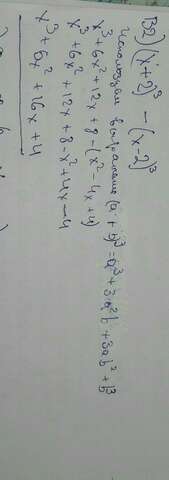 B2) (x+2)³ - (x-2)³
Используем выражение (a+b)³ = a³ + 3a²b + 3ab² + b³
x³ + 6x² + 12x + 8 - (x² - 4x + 4)
x³ + 6x² + 12x + 8 - x² + 4x - 4
x³ + 6x² + 16x + 4